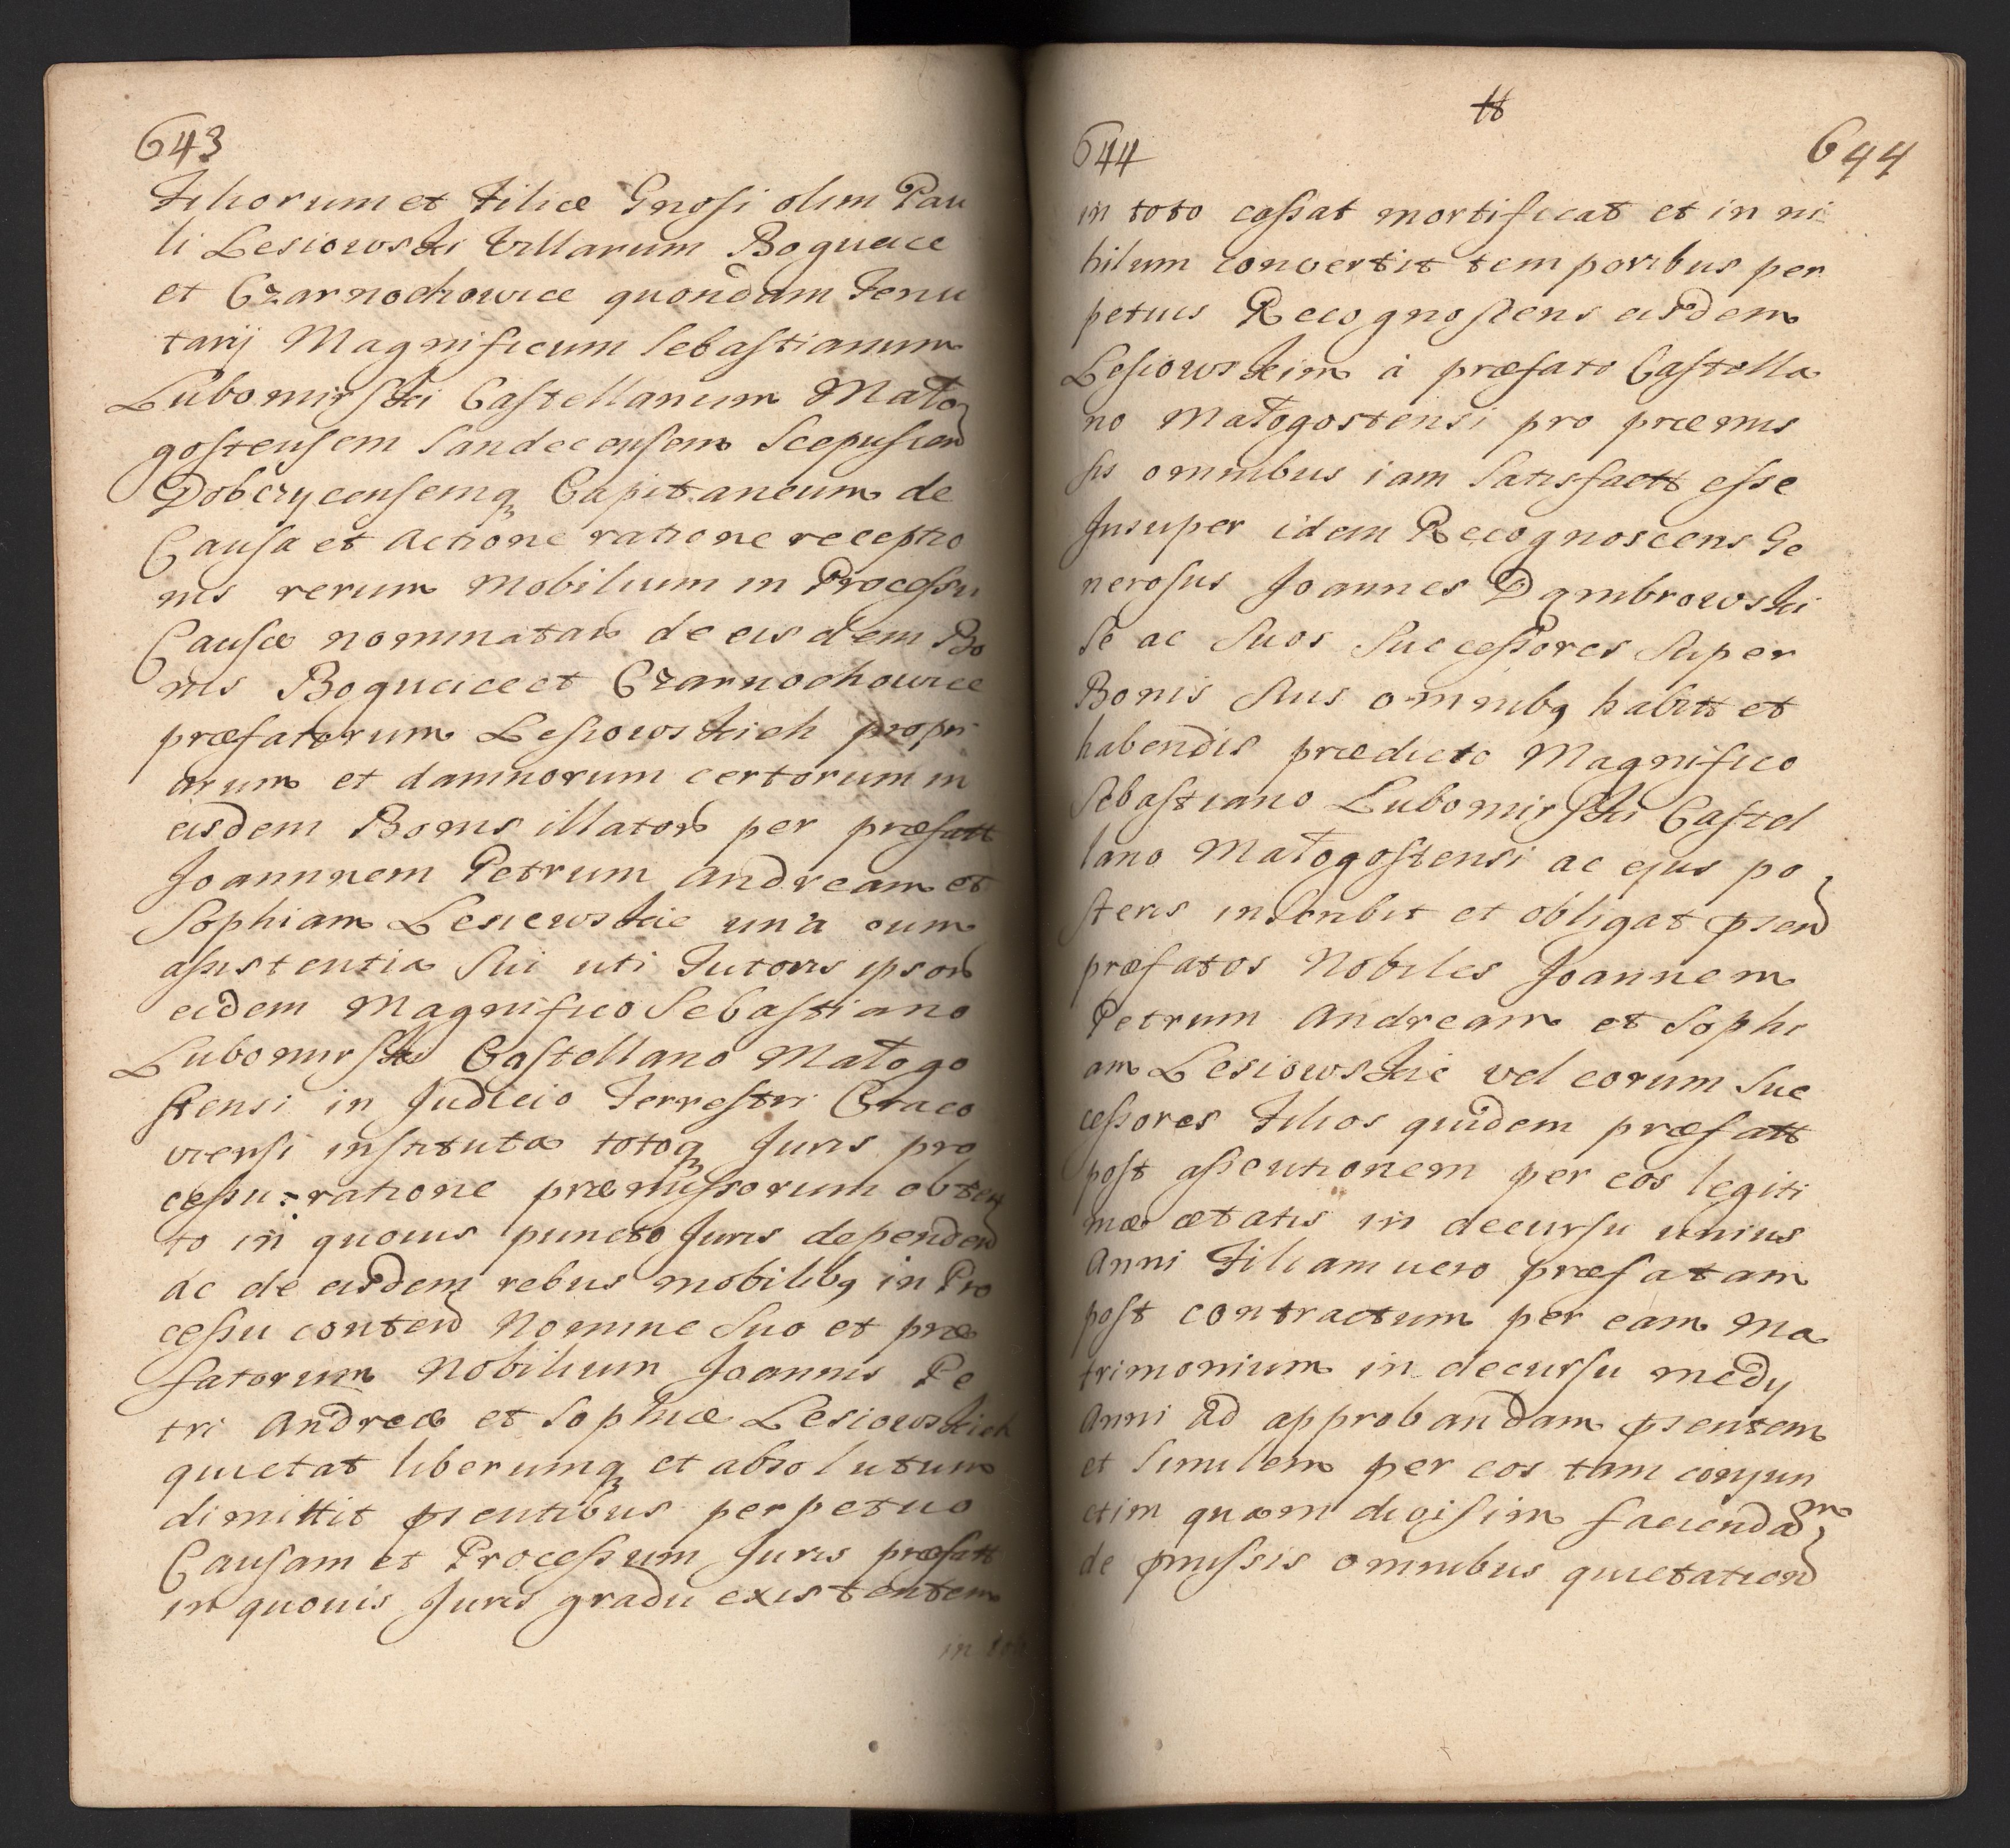 643
Filiorum et Filiæ Gnosi olim Pau
li Lesiowski Villarum Bogucice
et Czarnochowice quondam Tenu
tarij Magnificum Sebastianum
Lubomirski Castellanum Mało
gostensem Sandecensem Scepusien
Dobczycensemq Capitaneum de
Causa et Actione ratione receptio
nis rerum mobilium in Processu
Causæ nominatar de eisdem Bo
nis Bogucice et Czarnochowice
præfatorum Lesiowskich propri
arum et damnorum certorum in
eisdem Bonis illator per præfatt
Joannnem Petrum Andream et
Sophiam Lesiewskie una cum
assistentia Sui uti Tutoris ipsor
eidem Magnifico Sebastiano
Lubomirski Castellano Małogo
stensi in Judicio Terrestri Craco
viensi instituta totoq Juris pro
cessu ratione præmissorum obten
to in quovis puncto Juris dependen
ac de eisdem rebus mobilibq in Pro
cessu conten Nomine Suo et præ
fatorum Nobilium Joannis Pe
tri Andreæ et Sophiæ Lesiowskich
quietat liberumq et absolutum
dimittit psentibus perpetuo
Causam et Processum Juris præfatt
in quovis Juris gradu existentem
in toto
H
644
644
in toto cassat mortificat et in ni
hilum convertit temporibus per
petuis Recognoscens eisdem
Lesiowskim à præfato Castella
no Małogostensi pro præmis
sis omnibus iam Satisfactt esse
Insuper idem Recognoscens Ge
nerosus Joannes Dąmbrowski
Se ac Suos Successores Super
Bonis Suis omnibq habitt et
habendis prædicto Magnifico
Sebastiano Lubomirski Castel
lano Małogostensi ac ejus po
steris inscribit et obligat psen
præfatos Nobiles Joannem
Petrum Andream et Sophi
am Lesiowskie vel eorum Suc
cessores Filios quidem præfatt
post assecutionem per eos legiti
mæ ætatis in decursu unius
Anni Filiam vero præfatam
post contractum per eam Ma
trimonium in decursu medy
Anni ad approbandam psentem
et Similem per eos tam conjun
ctim quam divisim faciendam
de pmissis omnibus quietation